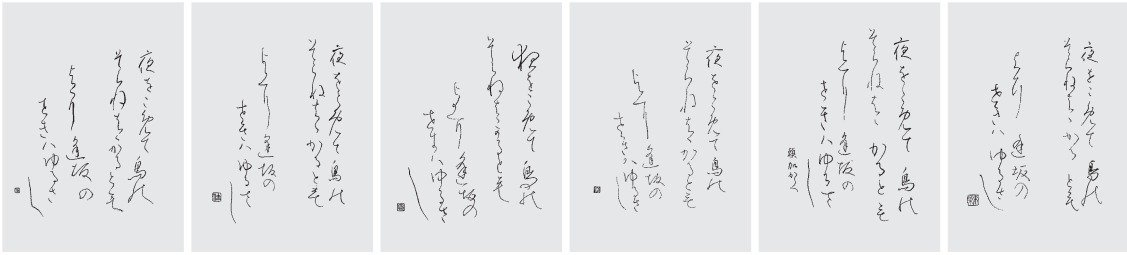 夜をこめて鳥の
そらねはゝかるとも
よに逢坂の
せきハゆるさ
し
夜をこめて鳥の
そらねはゝかるとも
よに逢坂の
せきハゆるさ
し
夜をこめて鳥の
そらねはゝかるとも
よに逢坂の
せきハゆるさ
し
夜をこめて鳥の
そらねはゝかるとも
よに逢坂の
せきハゆるさ
し
夜をこめて鳥の
そらねはゝかるとも
よに逢坂の
せきハゆるさ
し
夜をこめて鳥の
そらねはゝかるとも
よに逢坂の
せきハゆるさ
し